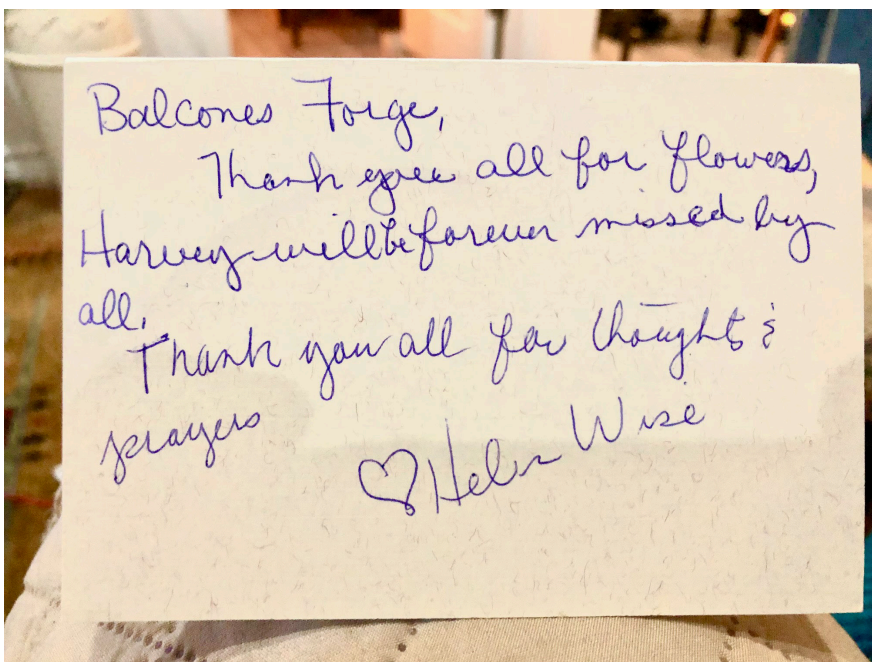 Balcones Forge,
Thank you all for flowers,
Harvey will be forever missed by
all.
Thank you all for thoughts &
prayers
♡ Helen Wise